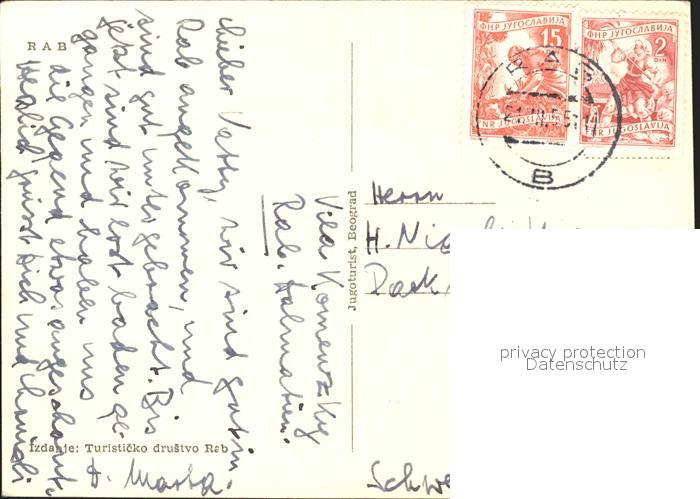 RAB
Lieber Vetty, wir sind gut in
Rab angekommen, und
sind gut untergebracht. Bis
jetzt sind wir erst baden ge-
gangen und haben uns
die Gegend etwas angeschaut
Herzlich grüsst Dich und
D. Marta.
Vila Komenzky
Rab. Dalmatien.
Izdanje: Turističko društvo Rab
Jugoturist, Beograd
ФНР ЈУГОСЛАВИЈА
15
FNR JUGOSLAVIJA
ФНР ЈУГОСЛАВИЈА
2
DIN
FNR JUGOSLAVIJA
B
Herrn
H.
privacy protection
Datenschutz